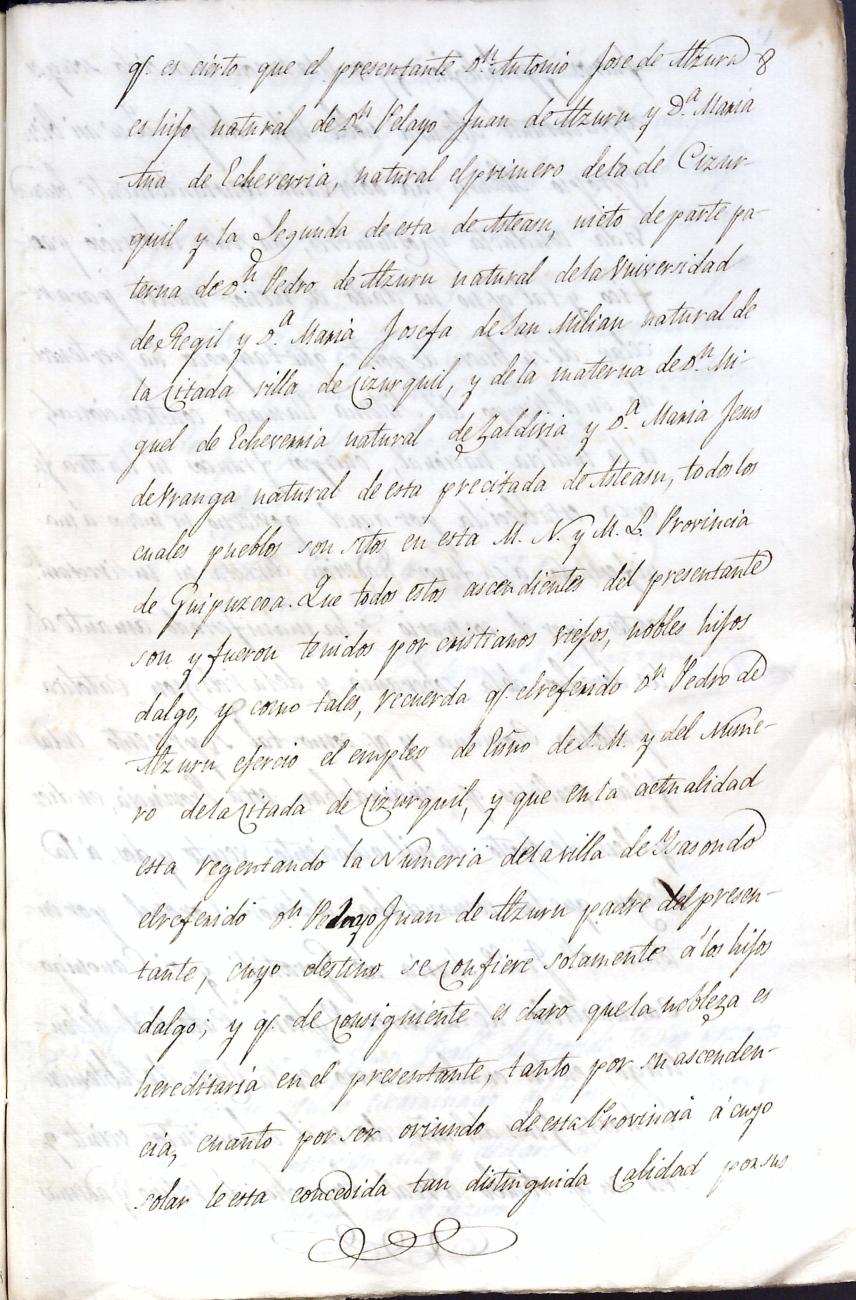 qᵉ. es cierto que el presentante Dⁿ. Antonio Jose de Alzuru 8
es hijo natural de Dⁿ Pelayo Juan de Alzuru y D.ᵃ Maria
Ana de Echeverria, natural el primero dela de Cizur-
quil y la Segunda de esta de Asteasu, nieto de parte pa-
terna de Dⁿ Pedro de Alzuru natural dela Universidad
de Regil y D.ᵃ Maria Josefa de San Milian natural de
la Citada villa de Cizurquil, y dela materna de Dⁿ. Mi-
guel de Echeverria natural de Zaldivia y D.ᵃ Maria Jesus
de Vranga natural de esta precitada de Asteasu, todos los
cuales pueblos son sitos en esta M. N. y M. L. Provincia
de Guipuzcoa. Que todos estos ascendientes del presentante
son y fueron tenidos por cristianos viejos, nobles hijos
dalgo, y como tales, recuerda qᵉ. el referido Dⁿ Pedro de
Alzuru ejercio el empleo de Esno de S. M. y del Nume-
ro dela Citada de Cizurquil, y que en la actualidad
esta regentando la Numeria dela villa de Vasondo
el referido Dⁿ. Pelayo Juan de Alzuru padre del presen-
tante, cuyo destino se confiere solamente á los hijos
dalgo; y qᵉ. de Consiguiente es claro que la nobleza es
hereditaria en el presentante, tanto por su ascenden-
cia, cuanto por ser oriundo de esta Provincia á cuyo
solar le esta concedida tan distinguida Calidad por sus